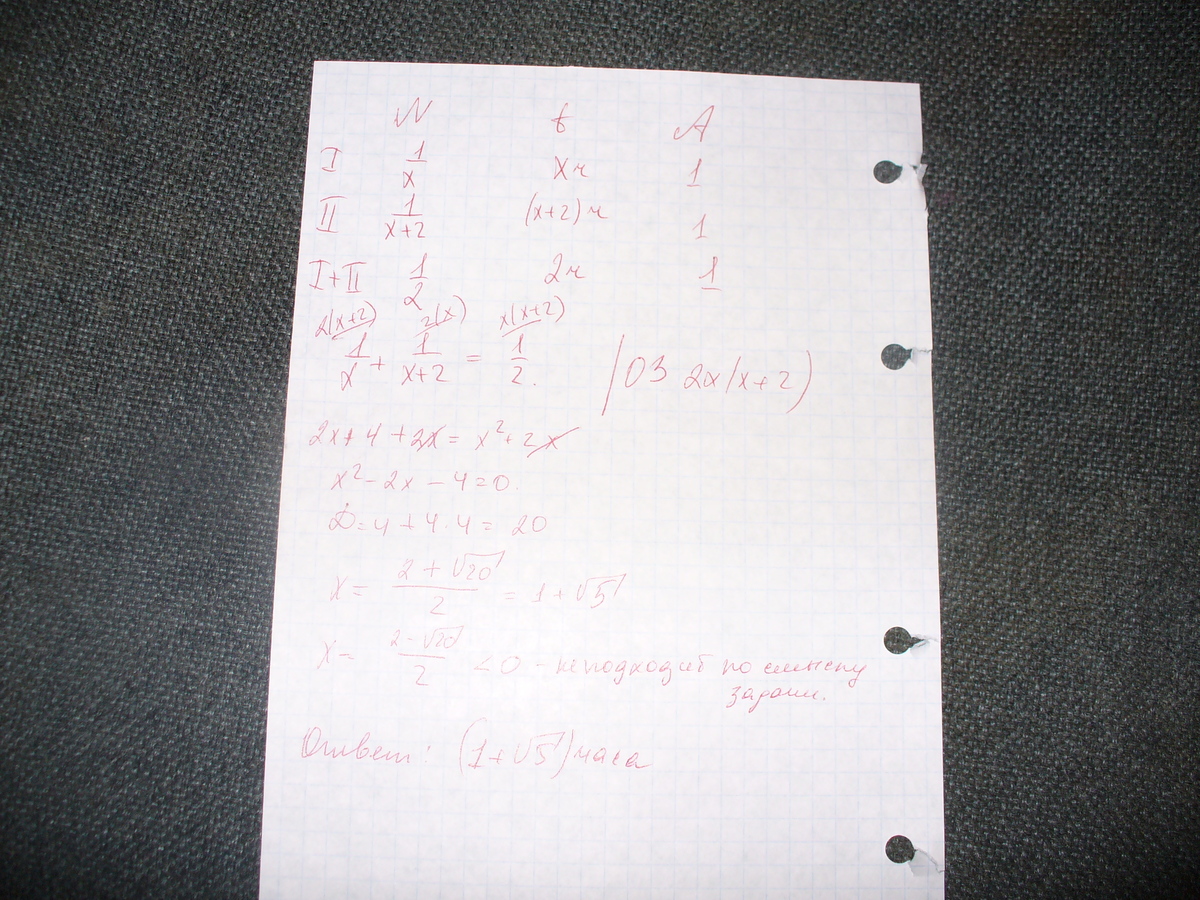 N t A
I 1/x xч 1
II 1/(x+2) (x+2)ч 1
I+II 1/2 2ч 1
2(x+2) 2(x) x(x+2)
1/x + 1/(x+2) = 1/2. | ОЗ 2x(x+2)
2x+4+2x = x²+2x
x²-2x-4=0.
D=4+4·4=20
x = (2+√20)/2 = 1+√5
x = (2-√20)/2 <0 - не подходит по смыслу
задачи.
Ответ: (1+√5) часа